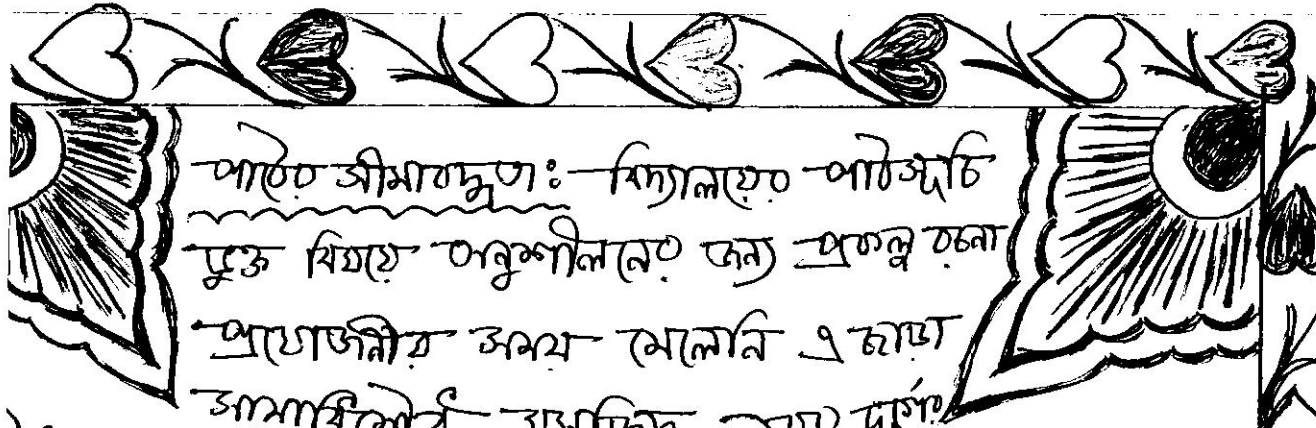 পাঠের সীমাবদ্ধতা: বিদ্যালয়ের পাঠসূচি
ভুক্ত বিষয়ে অনুশীলনের জন্য প্রকল্প রচনা
প্রয়োজনীয় সময় মেলেনি এ ছাড়া